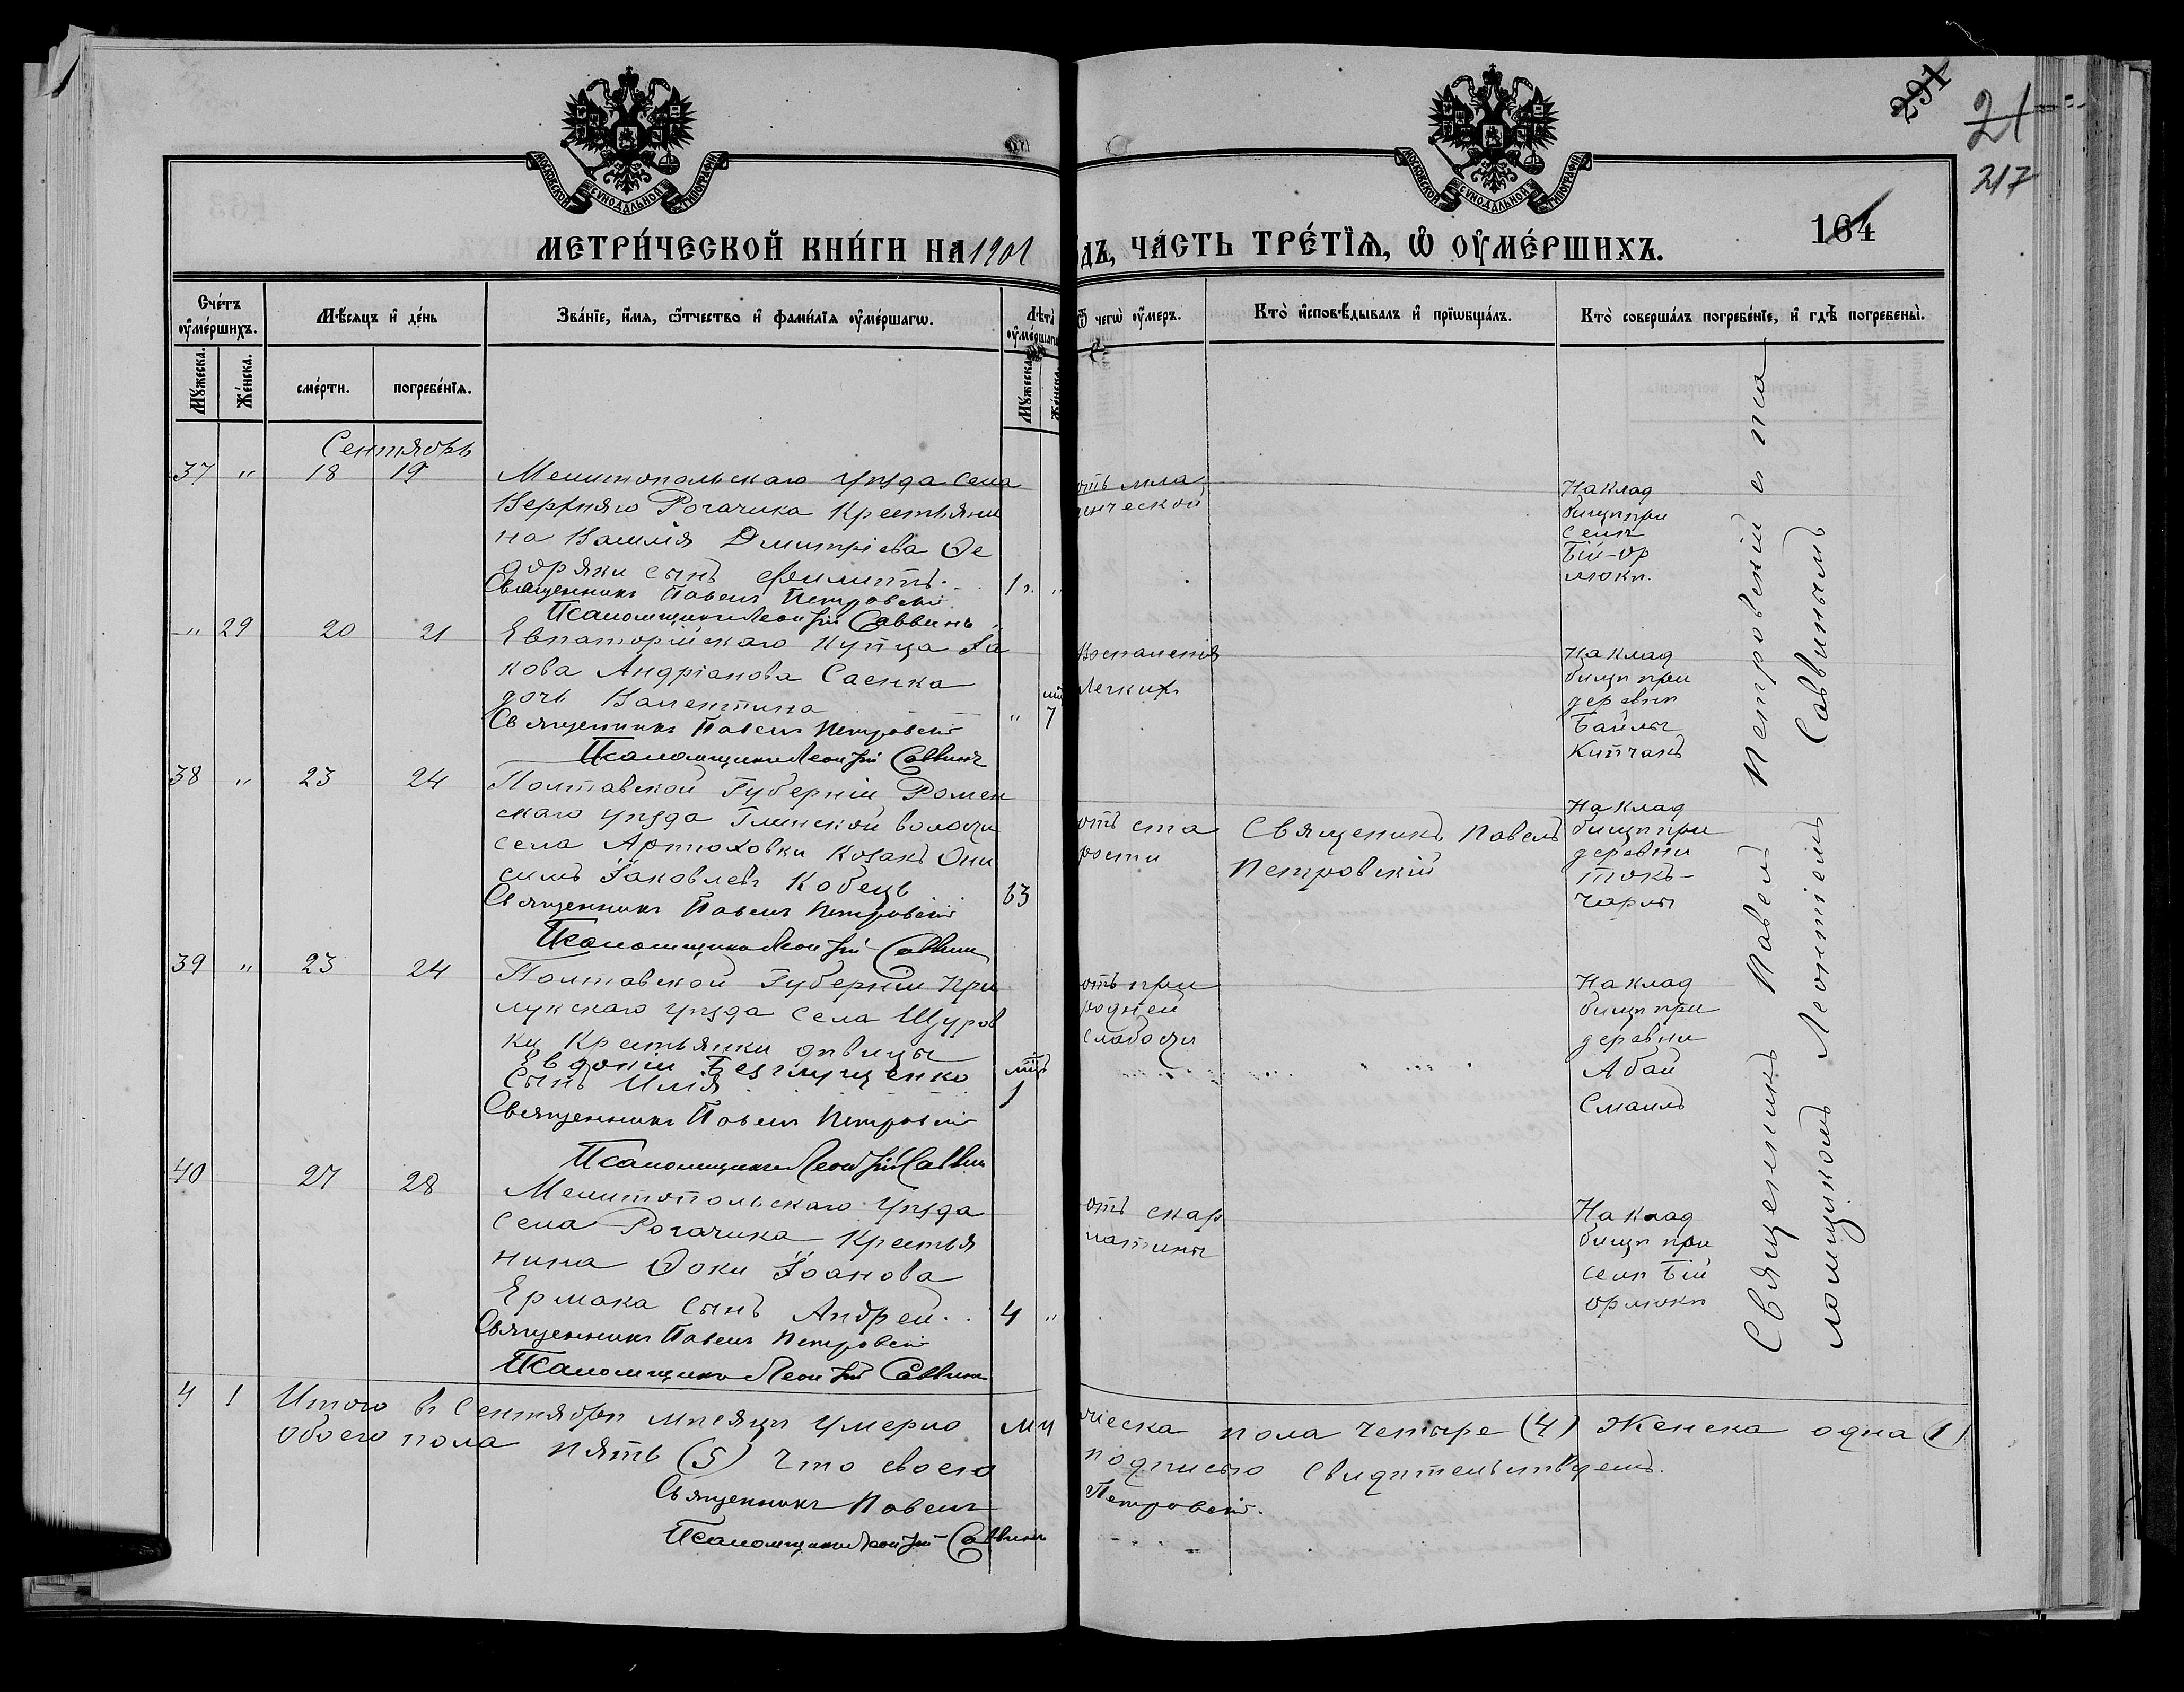 291
21
217
164
МОСКОВСКОЙ СѴНОДАЛЬНОЙ ТИПОГРАФІИ
МОСКОВСКОЙ СѴНОДАЛЬНОЙ ТИПОГРАФІИ
МЕТРИ́ЧЕСКОЙ КНИ́ГИ НА 1901
ДЪ, ЧА́СТЬ ТРЕ́ТІѦ, Ѡ҆ ОУ҆МЕ́РШИХЪ.
Сче́тъ оу҆ме́ршихъ.
Мѣ́сѧцъ и҆ де́нь
Зва́нїе, и҆́мѧ, ѻ҆́тчество и҆ фами́лїѧ оу҆ме́ршагѡ.
Лѣ́та оу҆ме́ршагѡ
Ѿ чегѡ̀ оу҆́меръ.
Кто̀ и҆сповѣ́дывалъ и҆ прїѡбща́лъ.
Кто̀ соверша́лъ погребе́нїе, и҆ гдѣ̀ погребены̀.
Мꙋ́жеска.
Же́нска.
сме́рти.
погребе́нїѧ.
Мꙋ́жеска
Же́нска
Сентябрь
37 " 18 19
Мелитопольскаго уѣзда села
Верхняго Рогачика Крестьяни
на Василія Дмитріева Ѳе
доряки сынъ Филиппъ. 1 г. "
Священникъ Павелъ Петровскій
Псаломщикъ Леонтій Саввинъ
отъ мла
денческой
На клад
бищѣ при
селѣ
Бій-ор
люкѣ.
" 29 20 21
Евпаторійскаго купца Іа
кова Андріанова Саенка
дочь Валентина " 7
Священникъ Павелъ Петровскій
Псаломщикъ Леонтій Саввинъ
Воспаленія
Легкихъ
На клад
бищѣ при
деревнѣ
Байлы
Кипчакъ
38 " 23 24
Полтавской Губерніи Ромен
скаго уѣзда Глинской волости
села Артюховки Козакъ Они
симъ Іаковлевъ Кобецъ 63
Священникъ Павелъ Петровскій
Псаломщикъ Леонтій Саввинъ
отъ ста
рости
Священикъ Павелъ
Петровскій
На клад
бищѣ при
деревни
Токъ-
чары
39 " 23 24
Полтавской Губерніи При
лукскаго уѣзда Села Щуров
ки Крестьянки дѣвицы
Евдокіи
Сынъ Илія 1
Священникъ Павелъ Петровскій
Псаломщикъ Леонтій Саввинъ
отъ при
родней
слабости
На клад
бищѣ при
деревни
Абай
Смаилъ
40 27 28
Мелитопольскаго уѣзда
села Рогачика Крестья
нина Ѳоки Іоанова
Ермака Сынъ Андрей. 4 "
Священникъ Павелъ Петровскій
Псаломщикъ Леонтій Саввинъ
отъ скар
латины
На клад
бищѣ при
селѣ Бій
орлюкѣ
Священникъ Павелъ Петровскій
ломщикомъ Леонтіемъ Саввинымъ
4 1 Итого въ Сентябрѣ мѣсяцѣ умерло му
жеска пола четыре (4) Женска одна (1)
обоего пола пять (5) Что своею
подписью свидѣтельствуемъ.
Священникъ Павелъ
Петровскій.
Псаломщикъ Леонтій Саввинъ